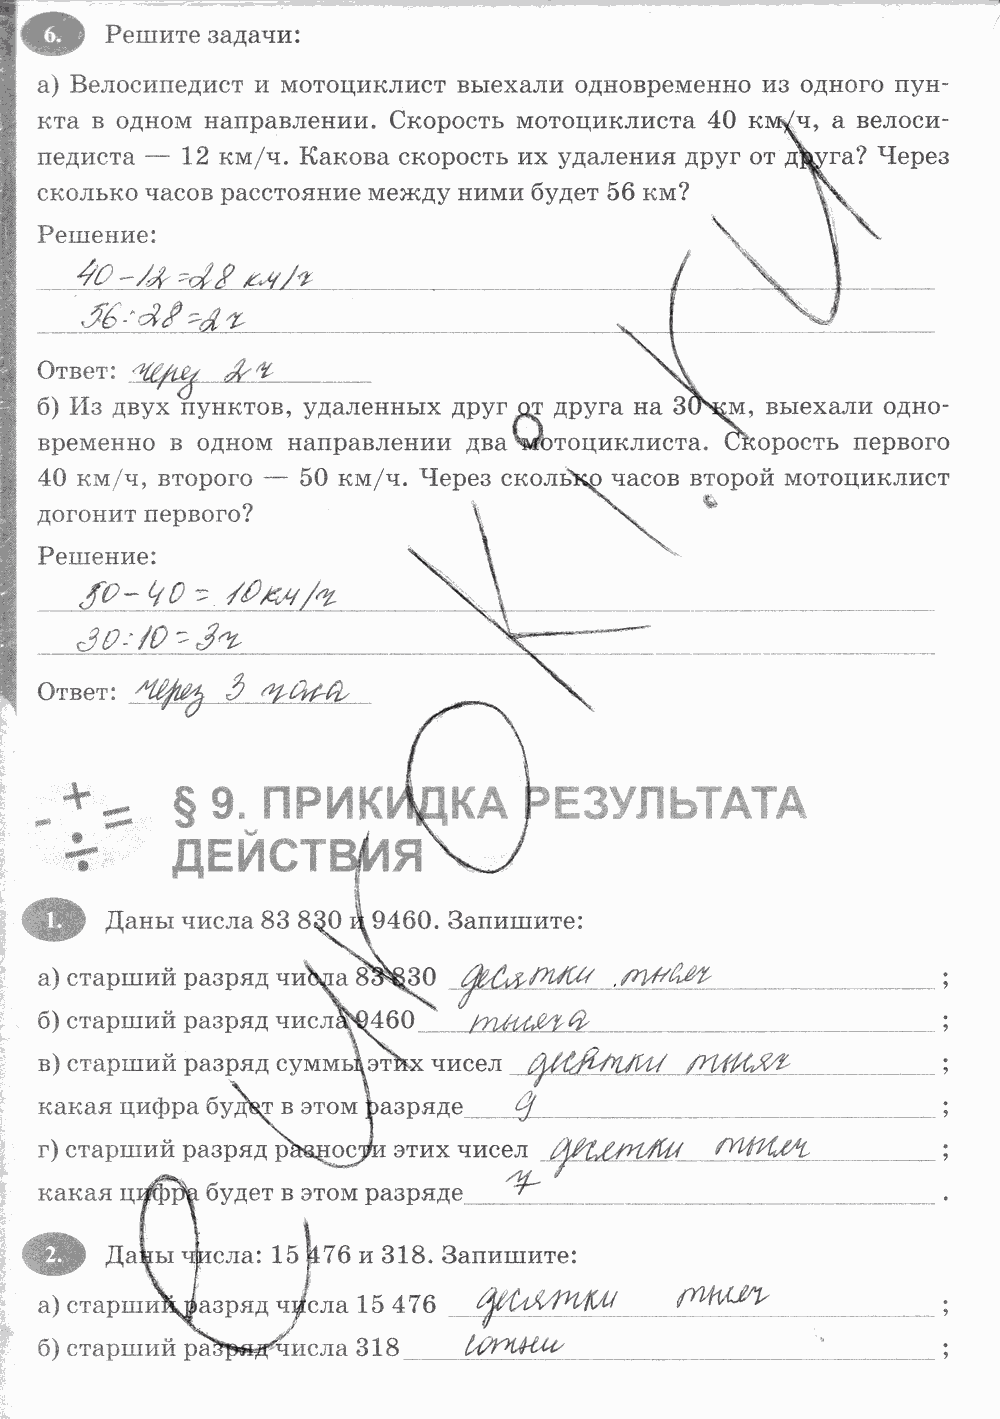 6. Решите задачи:
а) Велосипедист и мотоциклист выехали одновременно из одного пун-
кта в одном направлении. Скорость мотоциклиста 40 км/ч, а велоси-
педиста — 12 км/ч. Какова скорость их удаления друг от друга? Через
сколько часов расстояние между ними будет 56 км?
Решение:
40-12=28 км/ч
56:28=2ч
Ответ: через 2 ч
б) Из двух пунктов, удаленных друг от друга на 30 км, выехали одно-
временно в одном направлении два мотоциклиста. Скорость первого
40 км/ч, второго — 50 км/ч. Через сколько часов второй мотоциклист
догонит первого?
Решение:
50-40= 10км/ч
30:10=3ч
Ответ: через 3 часа
§ 9. ПРИКИДКА РЕЗУЛЬТАТА
ДЕЙСТВИЯ
1. Даны числа 83 830 и 9460. Запишите:
а) старший разряд числа 83 830 десятки тысяч ;
б) старший разряд числа 9460 тысяча ;
в) старший разряд суммы этих чисел десятки тысяч ;
какая цифра будет в этом разряде 9 ;
г) старший разряд разности этих чисел десятки тысяч ;
какая цифра будет в этом разряде 7 .
2. Даны числа: 15 476 и 318. Запишите:
а) старший разряд числа 15 476 десятки тысяч ;
б) старший разряд числа 318 сотни ;
euroki.ru